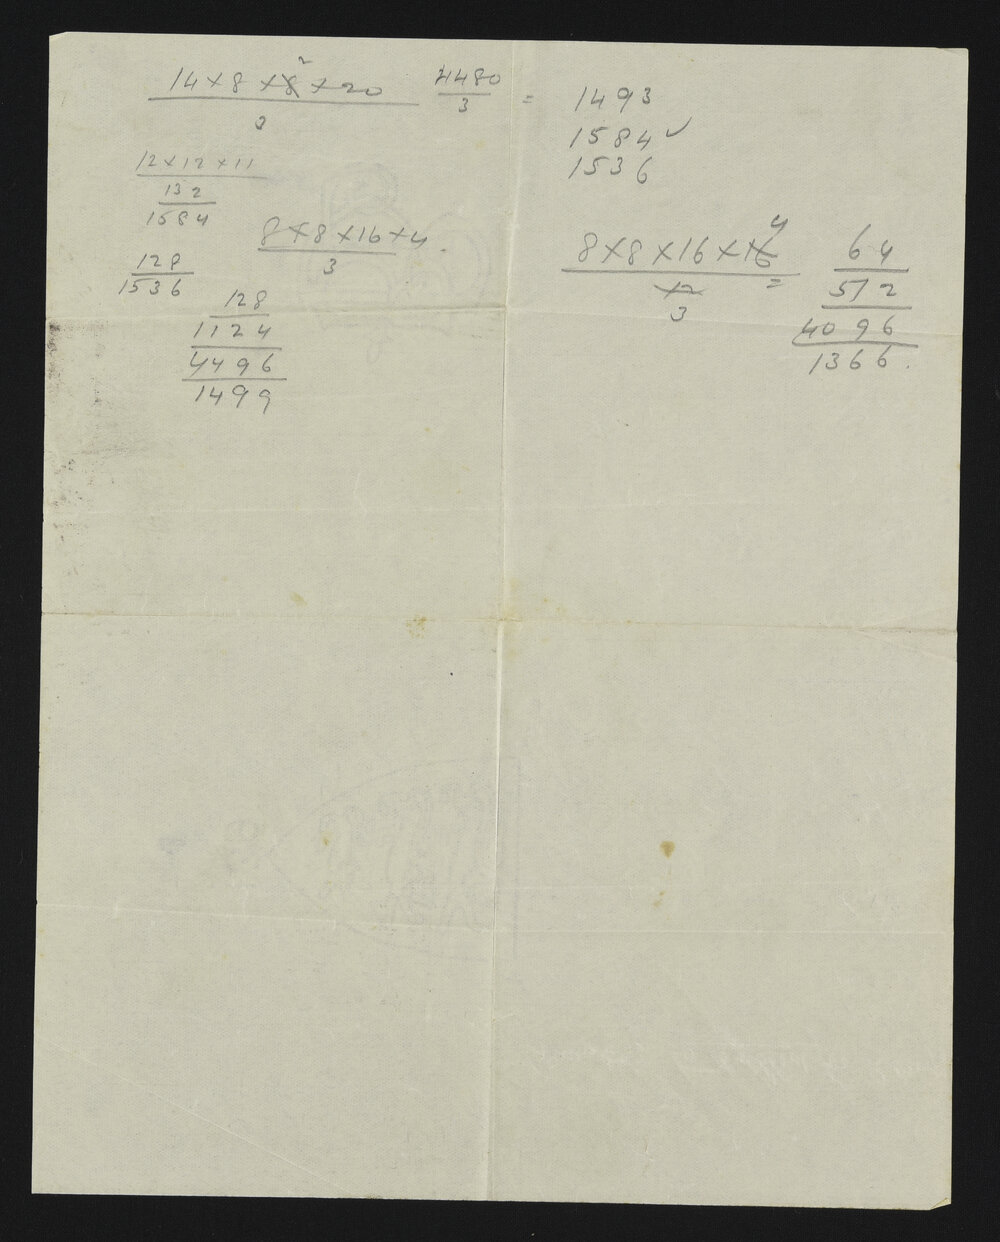 14 × 8 × 8 × 20
2
3
4480
3
=
1493
1584 ✓
1536
12 × 12 × 11
132
1584
128
1536
8 × 8 × 16 × 4.
3
128
1124
4496
1499
8 × 8 × 16 × 16
4
12
3
=
64
512
4096
1366.